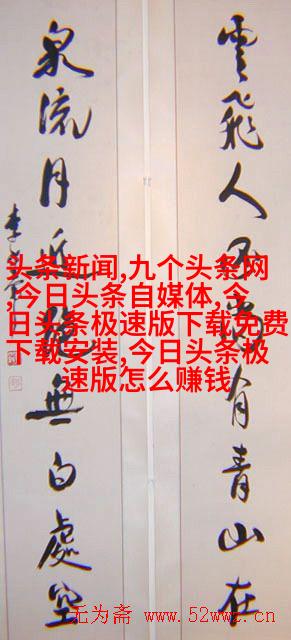 雲飛人有青山在
泉流月無白處空
李
头条新闻,九个头条网
,今日头条自媒体,今
日头条极速版下载免费
下载安装,今日头条极
速版怎么赚钱
无为斋 www.52wwz.cn